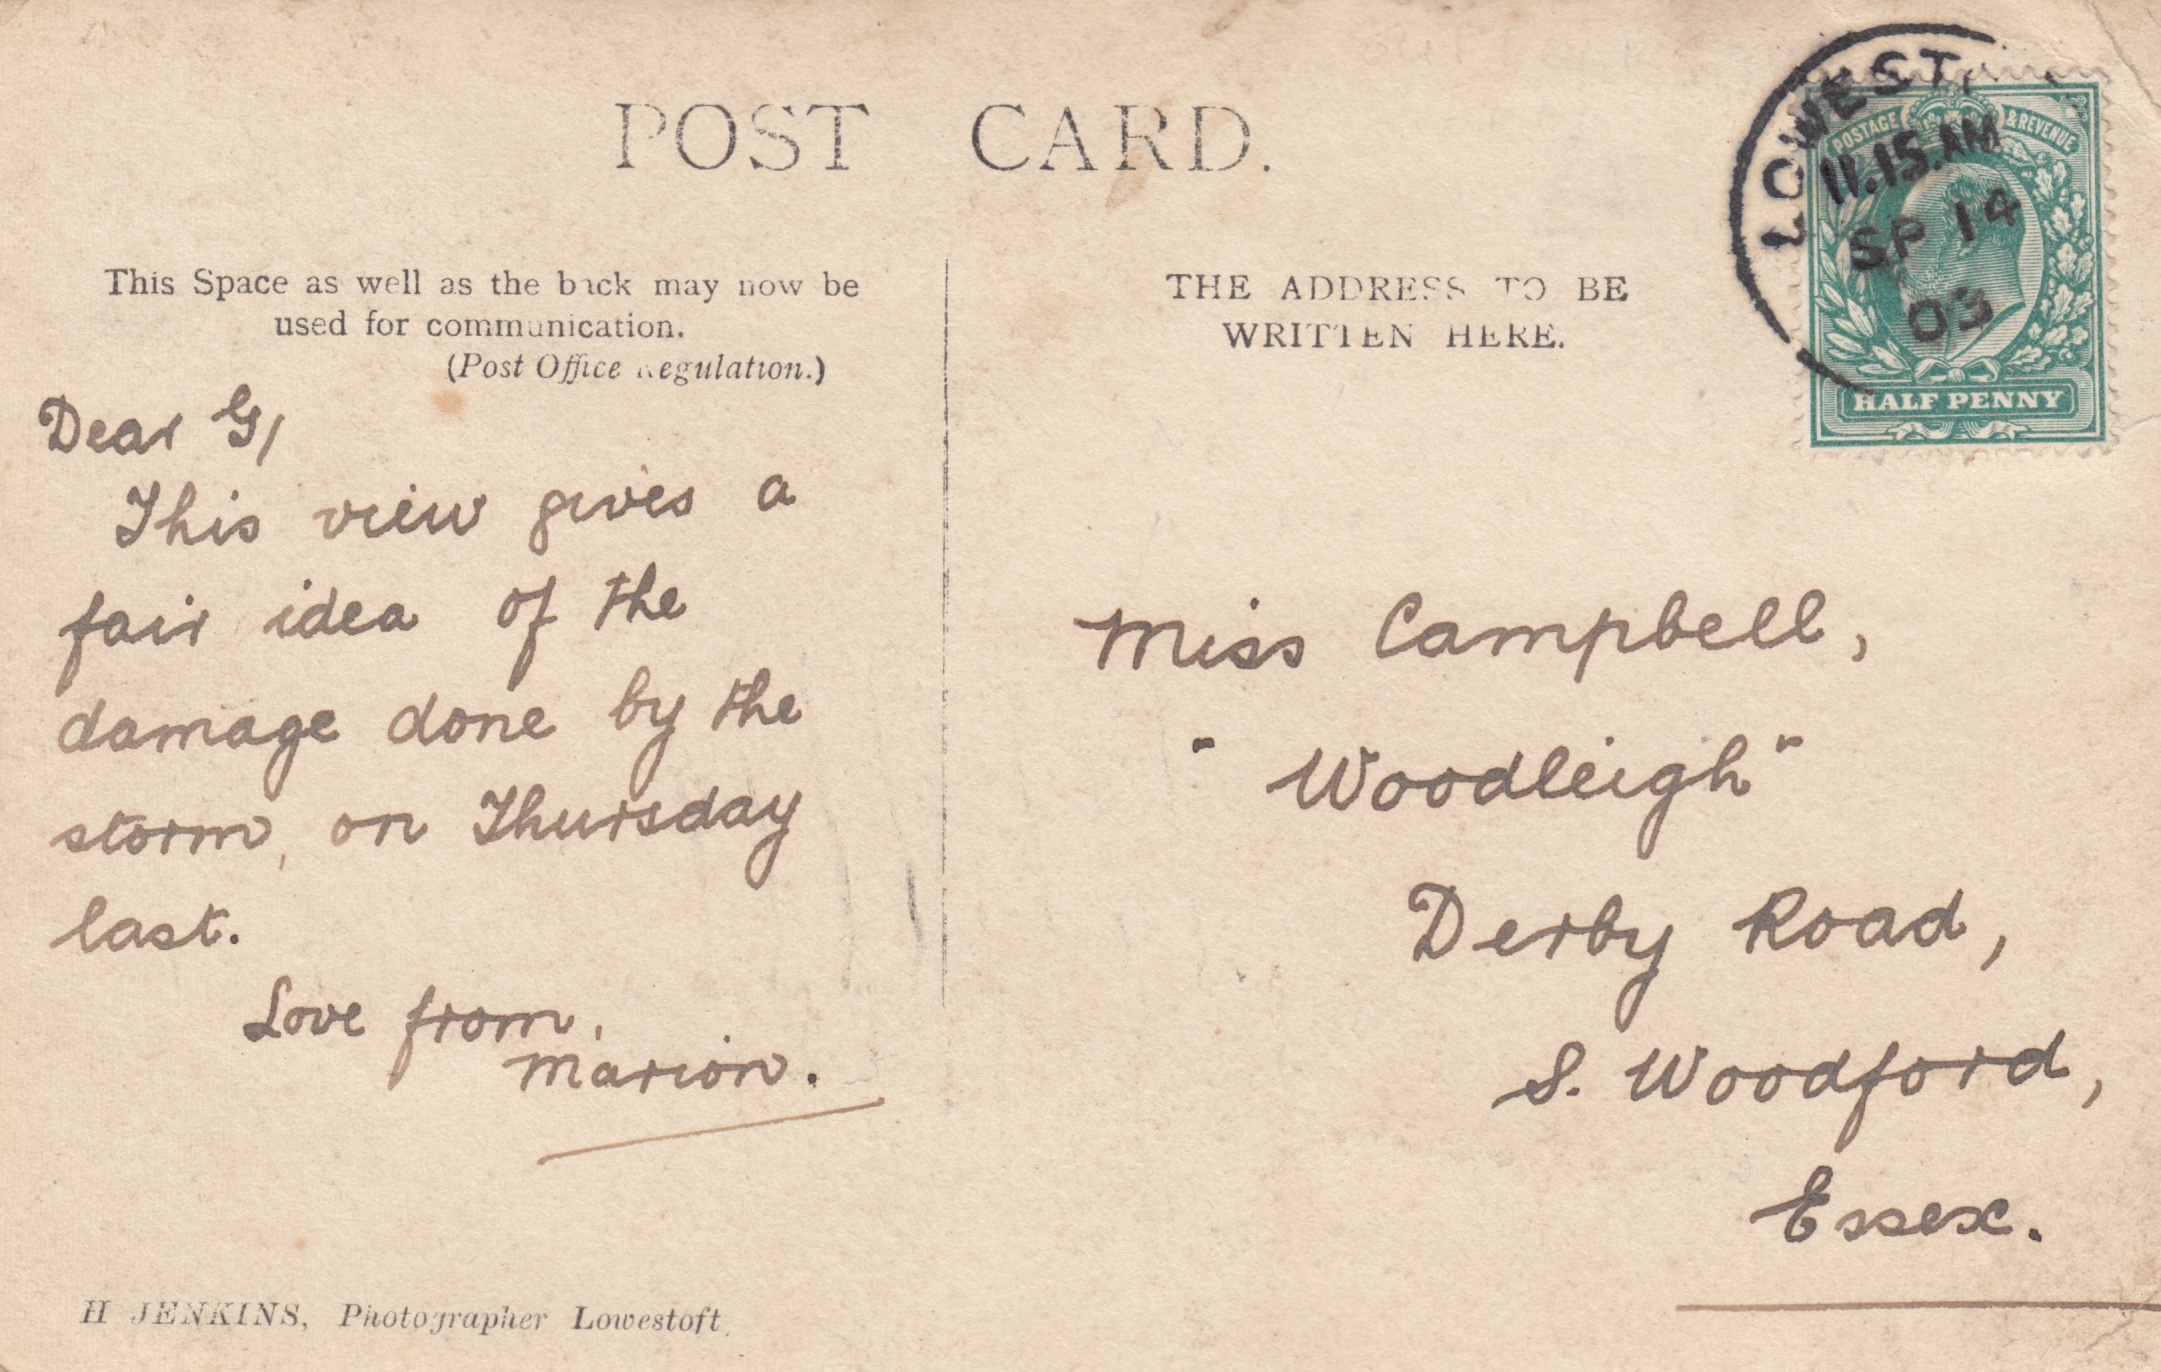 POST CARD.
This Space as well as the back may now be
used for communication.
(Post Office Regulation.)
THE ADDRESS TO BE
WRITTEN HERE.
LOWEST
11.15.AM
SP 14
03
POSTAGE & REVENUE
HALF PENNY
Dear G,
This view gives a
fair idea of the
damage done by the
storm, on Thursday
last.
Love from,
Marion.
Miss Campbell,
"Woodleigh"
Derby Road,
S. Woodford,
Essex.
H JENKINS, Photographer Lowestoft.